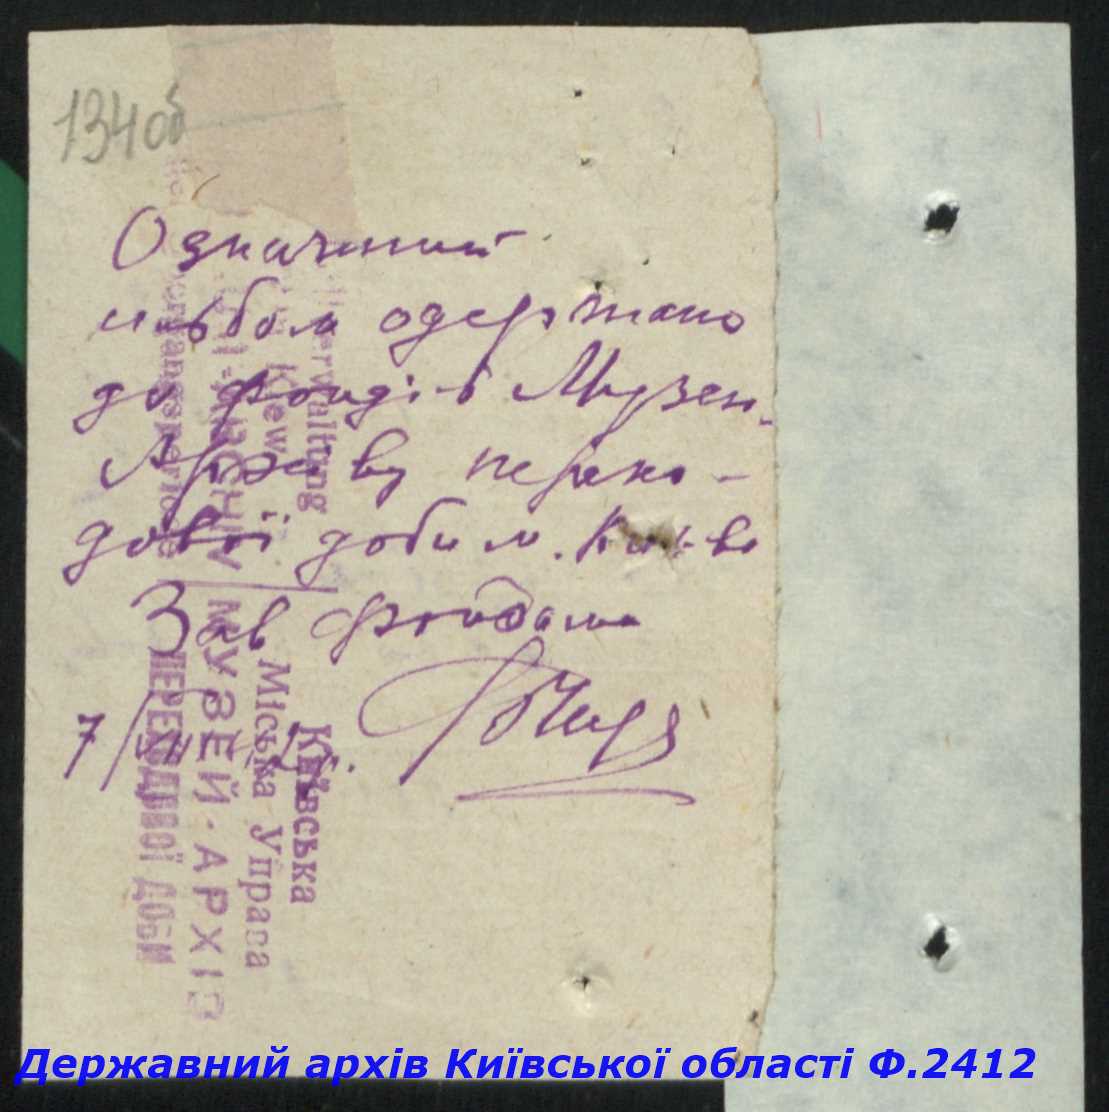 134 об
Означений
альбом одержано
до фондів Музею-
Архіву перехо-
дової доби м. Києва
Зав фондами
7/
Київська
Міська Управа
МУЗЕЙ-АРХІВ
ПЕРЕХОДОВОЇ ДОБИ
Державний архів Київської області Ф.2412